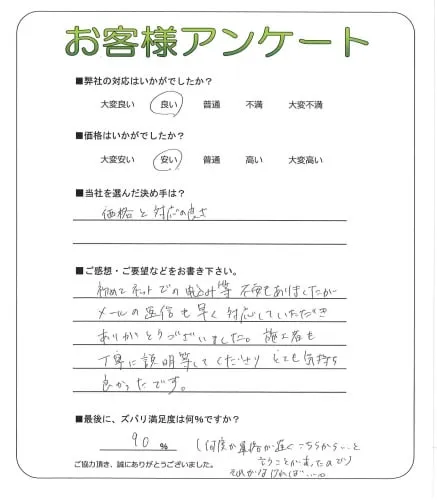 お客様アンケート
■弊社の対応はいかがでしたか？
大変良い 良い 普通 不満 大変不満
■価格はいかがでしたか？
大変安い 安い 普通 高い 大変高い
■当社を選んだ決め手は？
価格と対応の良さ
■ご感想・ご要望などをお書き下さい。
初めてネットでの申込み等 不安もありましたが
メールの返信も早く対応していただき
ありがとうございました。施工者も
丁寧に説明等してくださり とても気持ち
良かったです。
■最後に、ズバリ満足度は何%ですか？
90 %
(何度か返信が遅くこちらから…と
いうことがあったので)
それがなければ……。
ご協力頂き、誠にありがとうございました。